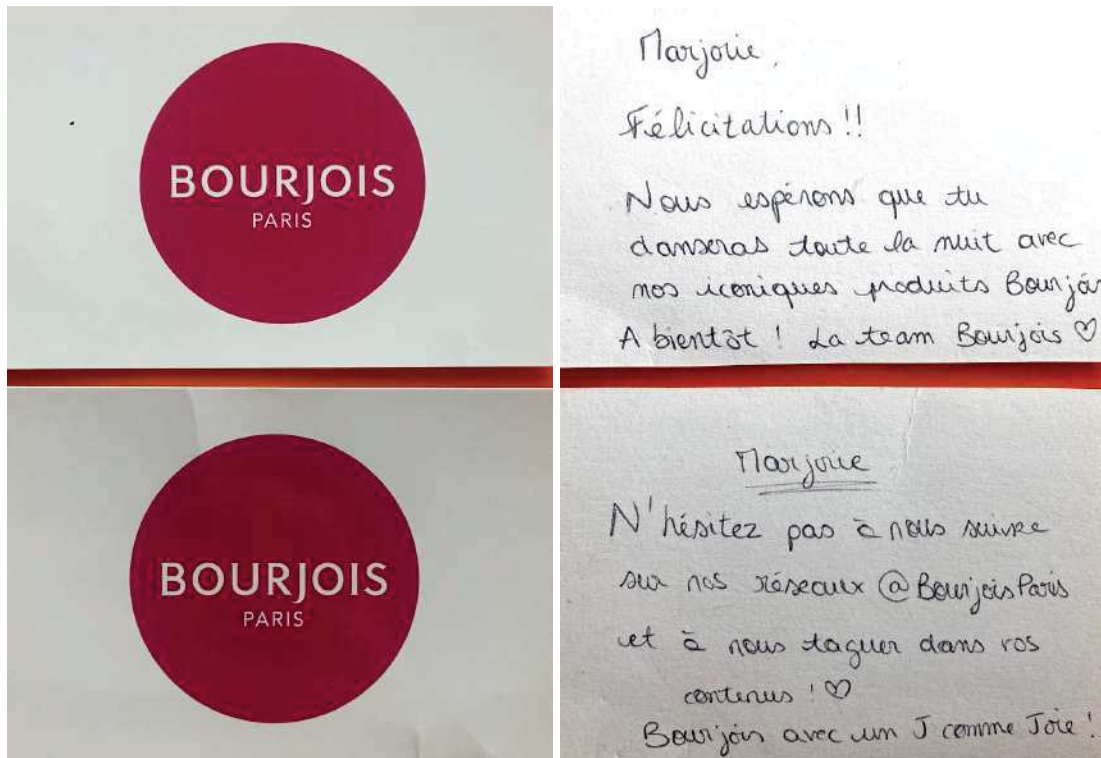 BOURJOIS
PARIS
Marjorie,
Félicitations !!
Nous espérons que tu
danseras toute la nuit avec
nos iconiques produits Bourjois
A bientôt ! La team Bourjois ♡
BOURJOIS
PARIS
Marjorie
N'hésitez pas à nous suivre
sur nos réseaux @BourjoisParis
et à nous taguer dans vos
contenus ! ♡
Bourjois avec un J comme Joie !